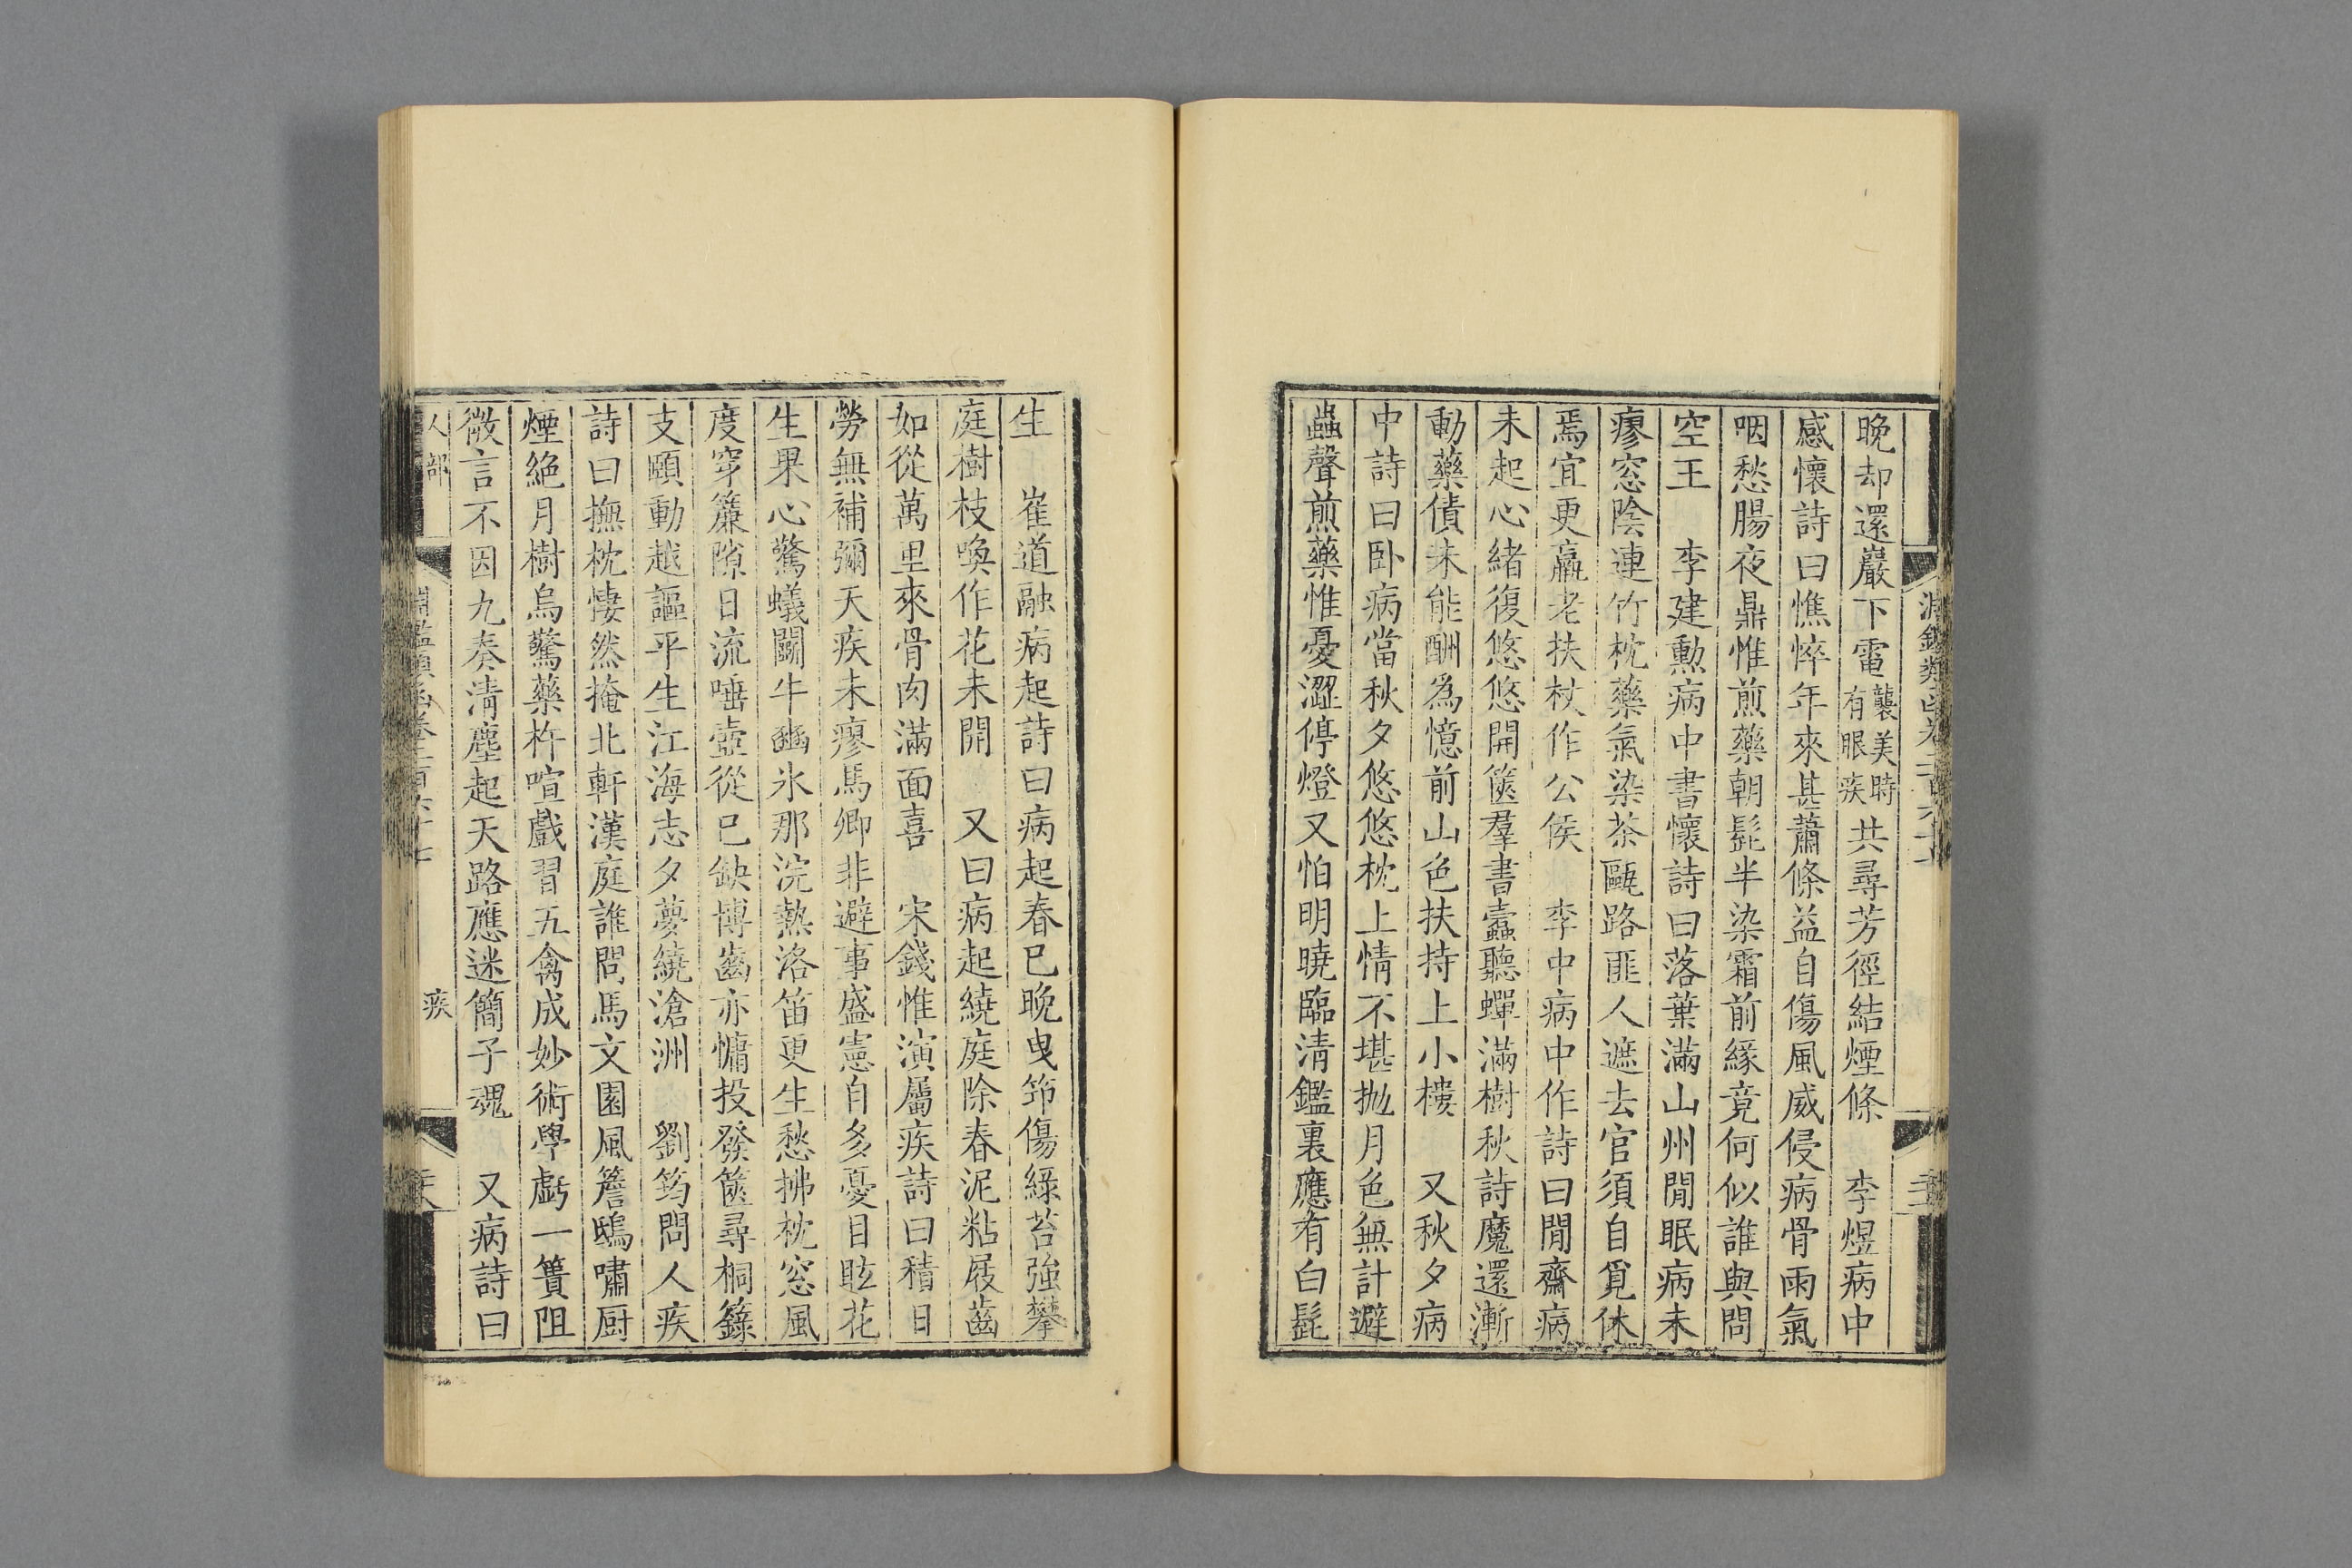 晚却還巖下電襲美時有眼疾共尋芳徑結煙條　李煜病中
感懷詩曰憔悴年來甚蕭條益自傷風威侵病骨雨氣
咽愁腸夜鼎惟煎藥朝髭半染霜前緣竟何似誰與問
空王　李建勲病中書懷詩曰落葉滿山州閒眠病未
瘳窓陰連竹枕藥氣染茶甌路匪人遮去官須自覓休
焉宜更羸老扶杖作公侯　李中病中作詩曰閒齋病
未起心緒復悠悠開篋羣書蠹聽蟬滿樹秋詩魔還漸
動藥債未能酬為憶前山色扶持上小樓　又秋夕病
中詩曰卧病當秋夕悠悠枕上情不堪抛月色無計避
蟲聲煎藥惟憂澀停燈又怕明曉臨清鑑裏應有白髭
生　崔道融病起詩曰病起春已晚曳笻傷綠苔強攀
庭樹枝喚作花未開　又曰病起繞庭除春泥粘屐齒
如從萬里來骨肉滿面喜　宋錢惟演屬疾詩曰積日
勞無補彌天疾未瘳馬卿非避事盛憲自多憂目眩花
生果心驚蟻鬭牛幽氷那浣熱洛笛更生愁拂枕窓風
度穿簾隙日流唾壺從已缺博齒亦慵投發篋尋桐籙
支頤動越謳平生江海志夕夢繞滄洲　劉筠問人疾
詩曰撫枕悽然掩北軒漢庭誰問馬文園風簷鴟嘯厨
煙絶月樹烏驚藥杵喧戲習五禽成妙術學虧一簣阻
微言不因九奏清塵起天路應迷簡子魂　又病詩曰
人部
淵鑑類函卷二百六十七
疾